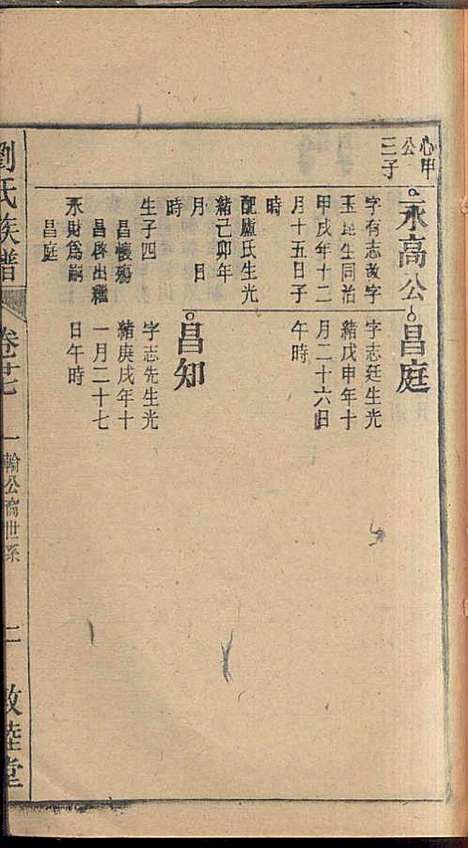 心甲
公
三子
永高公
字有志改字
玉崑生同治
甲戌年十二
月十五日子
時
配盧氏生光
緒己卯年
月　日
時
生子四
昌懷殤
昌啓出繼
永財爲嗣
昌庭
昌庭
字志廷生光
緒戊申年十
月二十六日
午時
昌知
字志先生光
緒庚戌年十
一月二十七
日午時
劉氏族譜
卷廿七
一輪公裔世系
二
敦睦堂